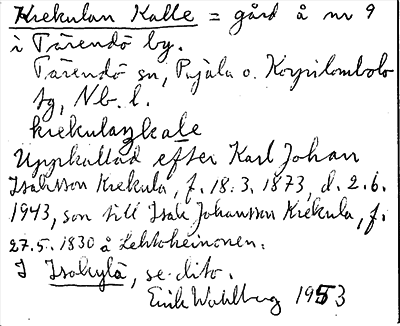 Krekulan Kalle = gård å nr 9
i Tärendö by.
Tärendö sn, Pajala o. Korpilombolo
tg, Nb. l.
krekulaŋkale
Uppkallad efter Karl Johan
Isaksson Krekula, f. 18.3.1873, d. 2.6.
1943, son till Isak Johansson Krekula, f.
27.5.1830 å Lehtoheinonen.
I Isokylä, se dito.
Erik Wahlberg 1953